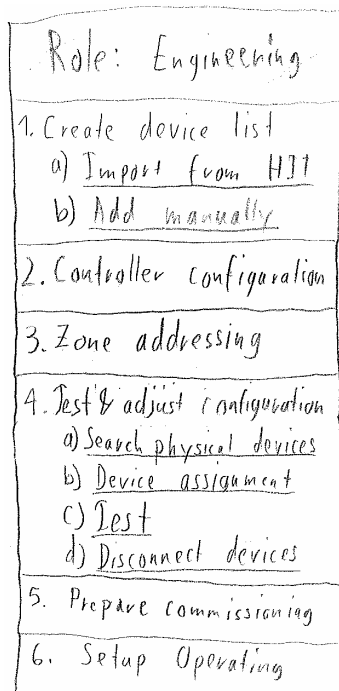 Role: Engineering
1. Create device list
a) Import from HIT
b) Add manually
2. Controller configuration
3. Zone addressing
4. Test & adjust configuration
a) Search physical devices
b) Device assignment
c) Test
d) Disconnect devices
5. Prepare commissioning
6. Setup Operating